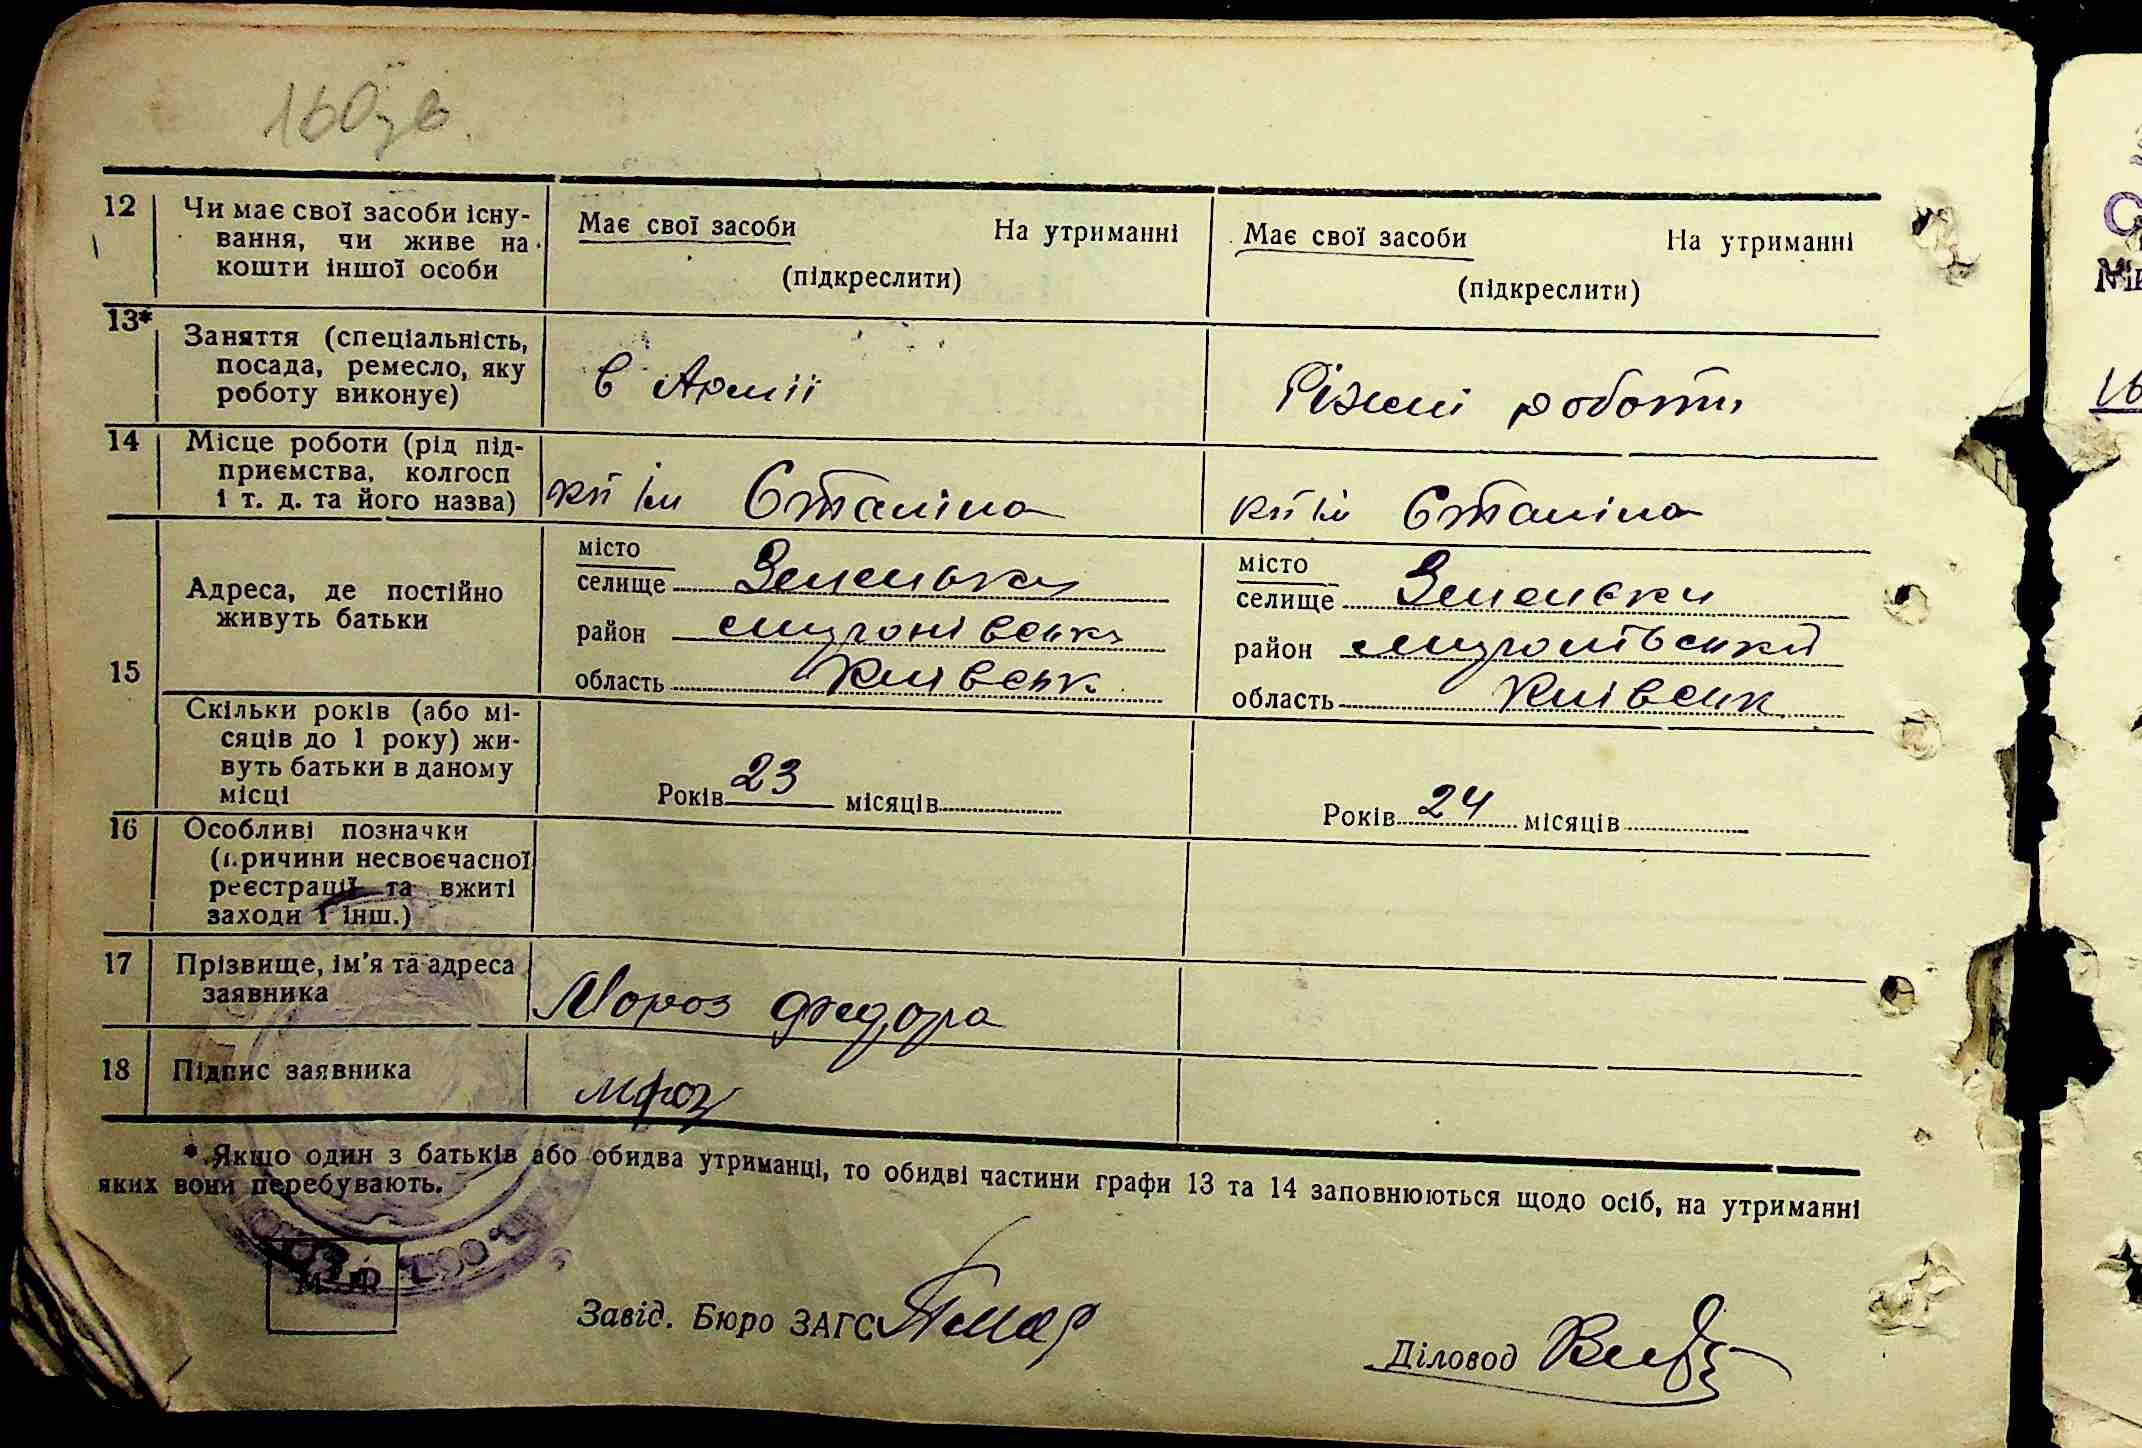 160
12 Чи має свої засоби існу-
вання, чи живе на
кошти іншої особи
Має свої засоби На утриманні
(підкреслити)
Має свої засоби На утриманні
(підкреслити)
13* Заняття (спеціальність,
посада, ремесло, яку
роботу виконує)
в Армії
Ріжні роботи
14 Місце роботи (рід під-
приємства, колгосп
і т. д. та його назва)
кп ім Сталіна
кп ім Сталіна
15
Адреса, де постійно
живуть батьки
місто
селище Зеленьки
район миронівськи
область Київськ
місто
селище Зеленьки
район миронівський
область Київськ
Скільки років (або мі-
сяців до 1 року) жи-
вуть батьки в даному
місці
Років 23 місяців
Років 24 місяців
16 Особливі позначки
(причини несвоєчасної
реєстрації та вжиті
заходи і інш.)
17 Прізвище, ім'я та адреса
заявника
Мороз Федора
18 Підпис заявника
* Якщо один з батьків або обидва утриманці, то обидві частини графи 13 та 14 заповнюються щодо осіб, на утриманні
яких вони перебувають.
Завід. Бюро ЗАГС
Діловод